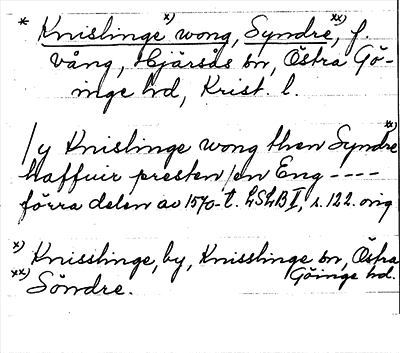 * Knislinge x) wong, Syndre xx), f.
vång, Hjärsås sn, Östra Gö-
inge hd, Krist. l.
/y Knislinge wong then Syndre xx)
haffuir presten /en Eng ----
förra delen av 1570-t. LSLB I, s. 122. orig
x) Knisslinge, by, Knisslinge sn, Östra
Göinge hd.
xx) Söndre.